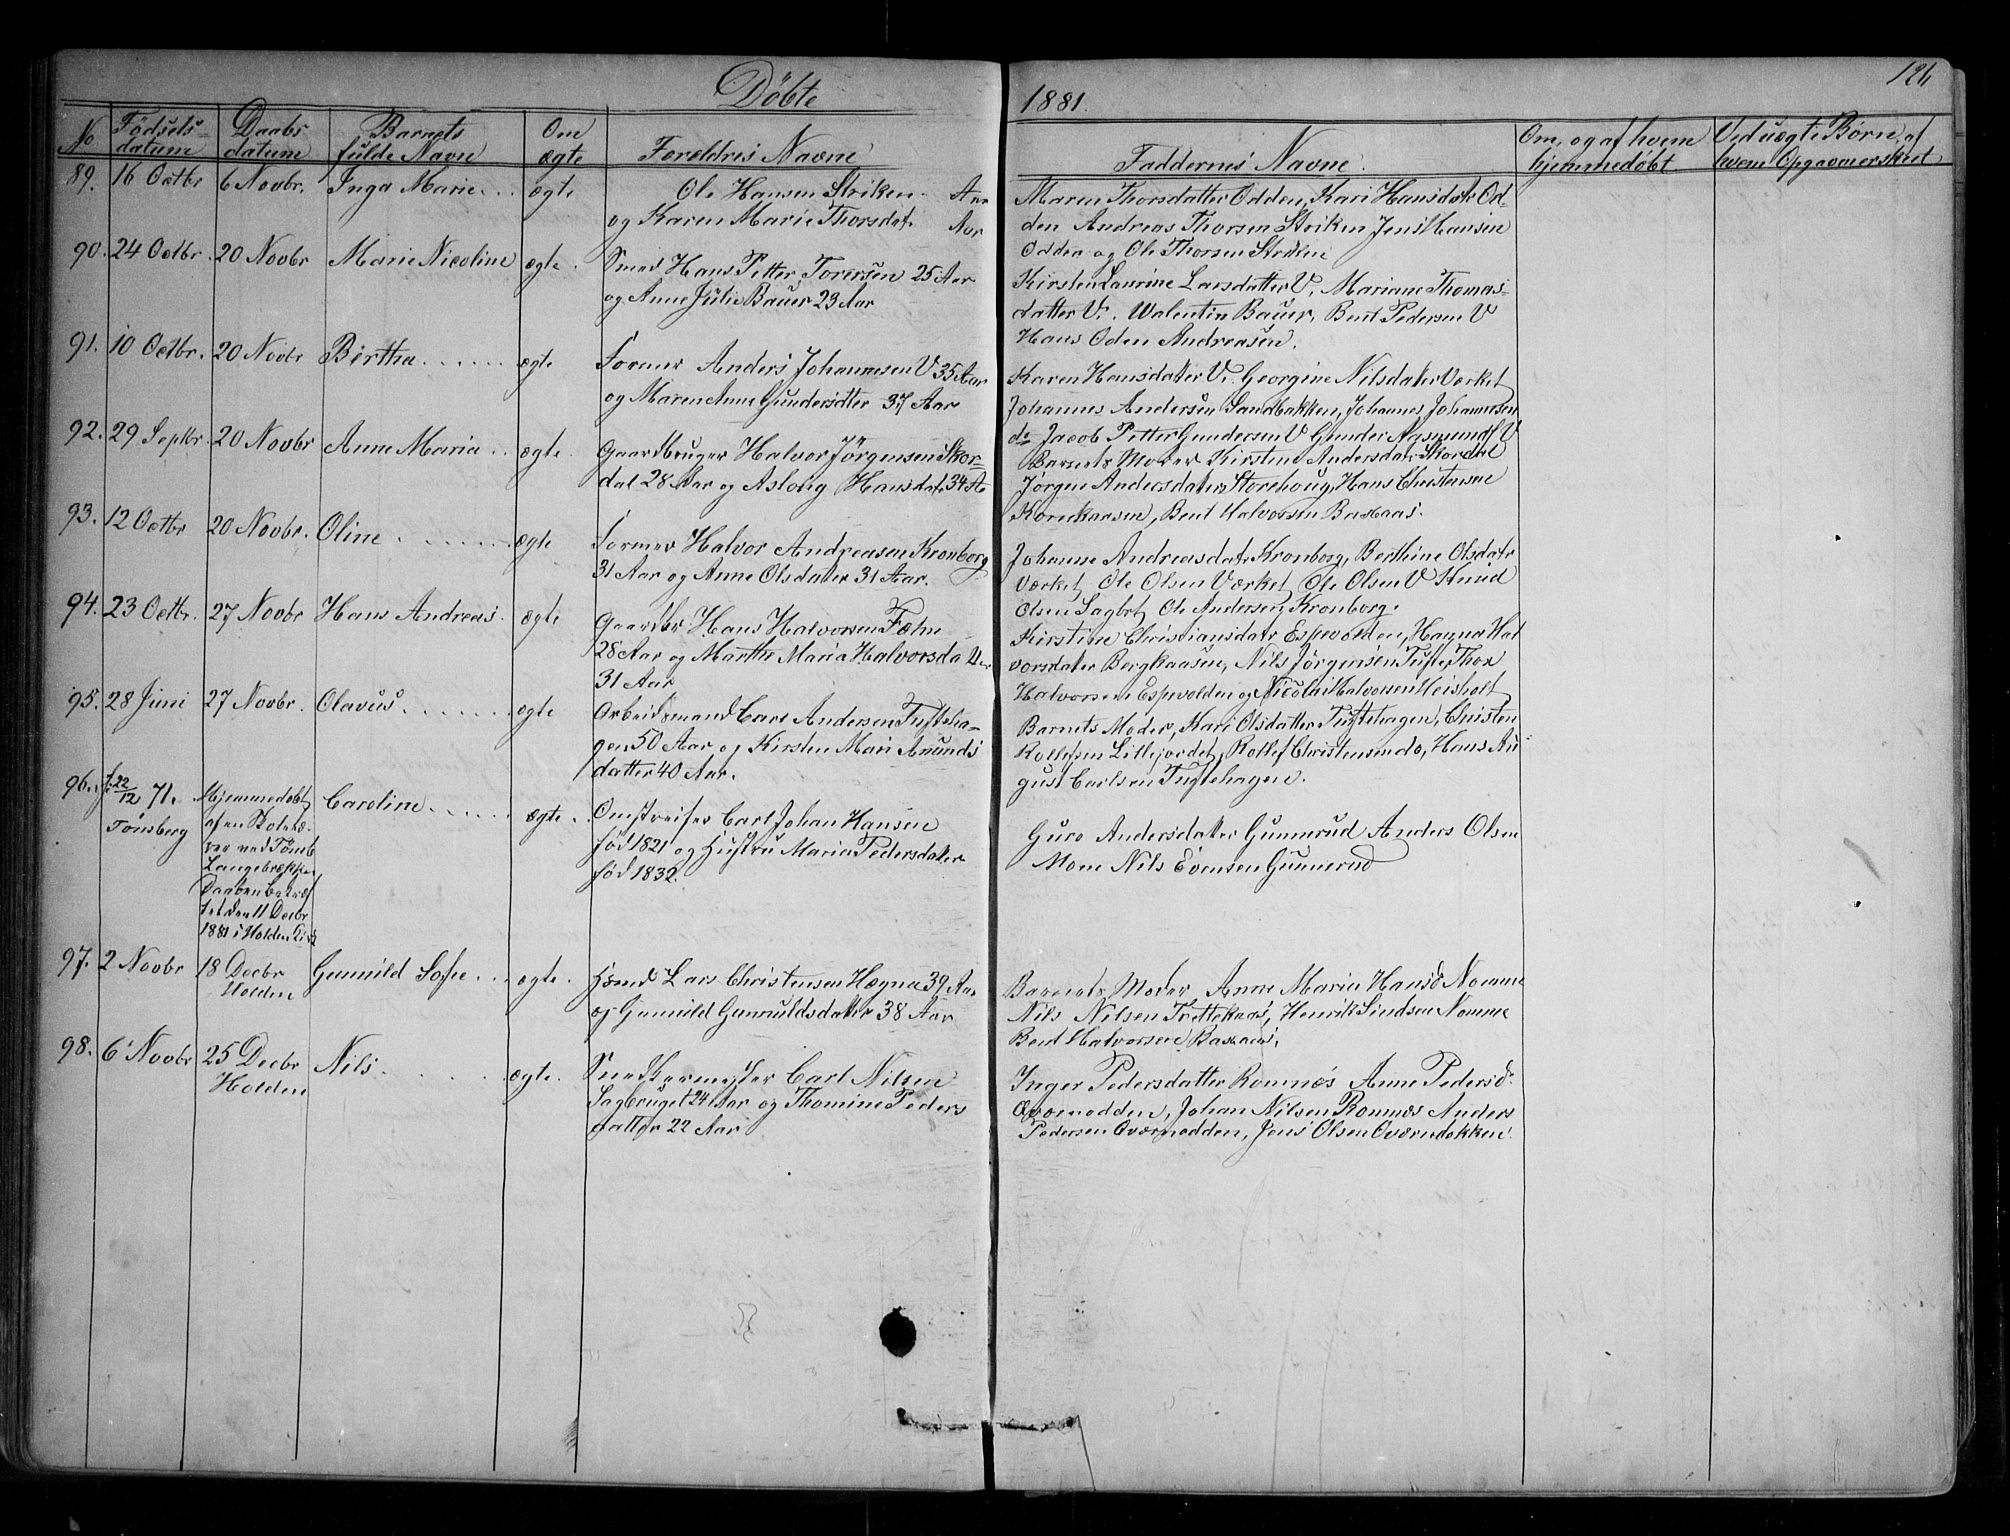 Döbte
1881.
126
No
Födsels-
datum
Daabs
datum
Barnets
fulde Navne
Om
ægte
Foreldres Navne
Faddernes Navne.
Om, og af hvem
hjemmedöbt
Ved uægte Børn, af
hvem Opgaven er skeet
89. 16 Octbr 6 Novbr. Inga Marie. . . ægte
Ole Hansen Striken. Aar
og Karen Marie Thorsdat. Aar
Maren Thorsdatter Odden, Kari Hansdatr Od-
den Andreas Thorsen Striken Jens Hansen
Odden og Ole Thorsen
90. 24 Octbr. 20 Novbr Marie Nicoline ægte.
Smed Hans Petter Torersen 25 Aar
og Anne Julie Bauer 23 Aar
Kirsten Laurine Larsdatter V. Mariane Thomas-
datter V. Walentin Bauer, Bent Pedersen V
Hans Oden Andreasen.
91. 10 Octbr. 20 Novbr Birtha . . . . . ægte
Former Anders Johannesen V 35 Aar
og Maren Anne Gundersdtter 37 Aar
Karen Hansdatter V. Georgine Nilsdater Værket
Johannes Andersen Sandbakken, Johannes Johannesen
do Jacob Petter Gundersen V Gunder V
92. 29 Septbr. 20 Novbr Anne Maria . . ægte.
Gaardbruger Halvor Jørgensen Skor-
dal 28 Aar og Aslaug Hansdat. 34 A
Barnets Moder Kirstine Andersdatr Skordal
Jørgen Andersdater Storehoug, Hans Christensen
Korekaasen, Bent Halvorsen Baskaas.
93. 12 Octbr 20 Novbr. Oline . . . . . ægte
Former Halvor Andreasen Kronborg
31 Aar og Anne Olsdater 31 Aar.
Johanne Andreasdat. Kronborg, Berthine Olsdatr
Værket, Ole Olsen Værket, Ole Olsen V Knud
Olsen Sagbrt, Ole Andersen Kronborg.
94. 23 Octbr. 27 Novbr Hans Andreas. ægte
Gaardbr Hans Halvorsen Fæhn
28 Aar og Marthe Maria Halvorsdatter
31 Aar
Kirstine Christiansdatr Espevolden, Hanna Hal
vorsdater Bergkaasen, Nils Jörgensen Tufte, Thor
Halvorsen Espevolden og Nicolai Halvorsen Heisholt
95. 28 Juni 27 Novbr. Olavus. . . . . . . ægte
Arbeidsmand Carl Andersen Tufteha-
gen 50 Aar og Kirsten Mari Amunds
datter 40 Aar.
Barnets Moder, Kari Olsdatter Tuftehagen, Christen
Rollefsen Lillejordet, Rollef Christensen do, Hans Au
gust Carlsen Tuftehagen.
96. f. 22/12 71.
Tønsberg
Hjemmedøbt
af en Skolelæ-
rer ved Tönsb
Daaben bekræf
tet den 11 Decbr
1881 i Holden Kirk
Caroline. . . . . . ægte.
Omstreifer Carl Johan Hansen
fød 1821 og Hustru Maria Pedersdater
fød 1832.
Guro Andersdater Gunnerud Anders Olsen
Moen Nils Evensen Gunnerud
97. 2 Novbr 18 Decbr
Holden
Gunnild Sofie . . . ægte.
Lars Christensen Hægna 39 Aar
og Gunnild Gunnuldsdater 38 Aar
Barnets Moder Anne Maria Hansd Nomme
Nils Nilsen Trettekaas, Henrik Nomme
Bent Halvorsen Baskaas.
98. 6 Novbr 25 Decbr
Holden
Nils. . . . . . ægte.
Snedkermester Carl Nilsen
Sagbruget 24 Aar og Thomine Peders
datter 22 Aar
Inger Pedersdatter Romnæs Anne Pedersd.
Oværnodden, Johan Nilsen Romnæs Anders
Pedersen Oværnodden, Jens Olsen Oværnbakken.